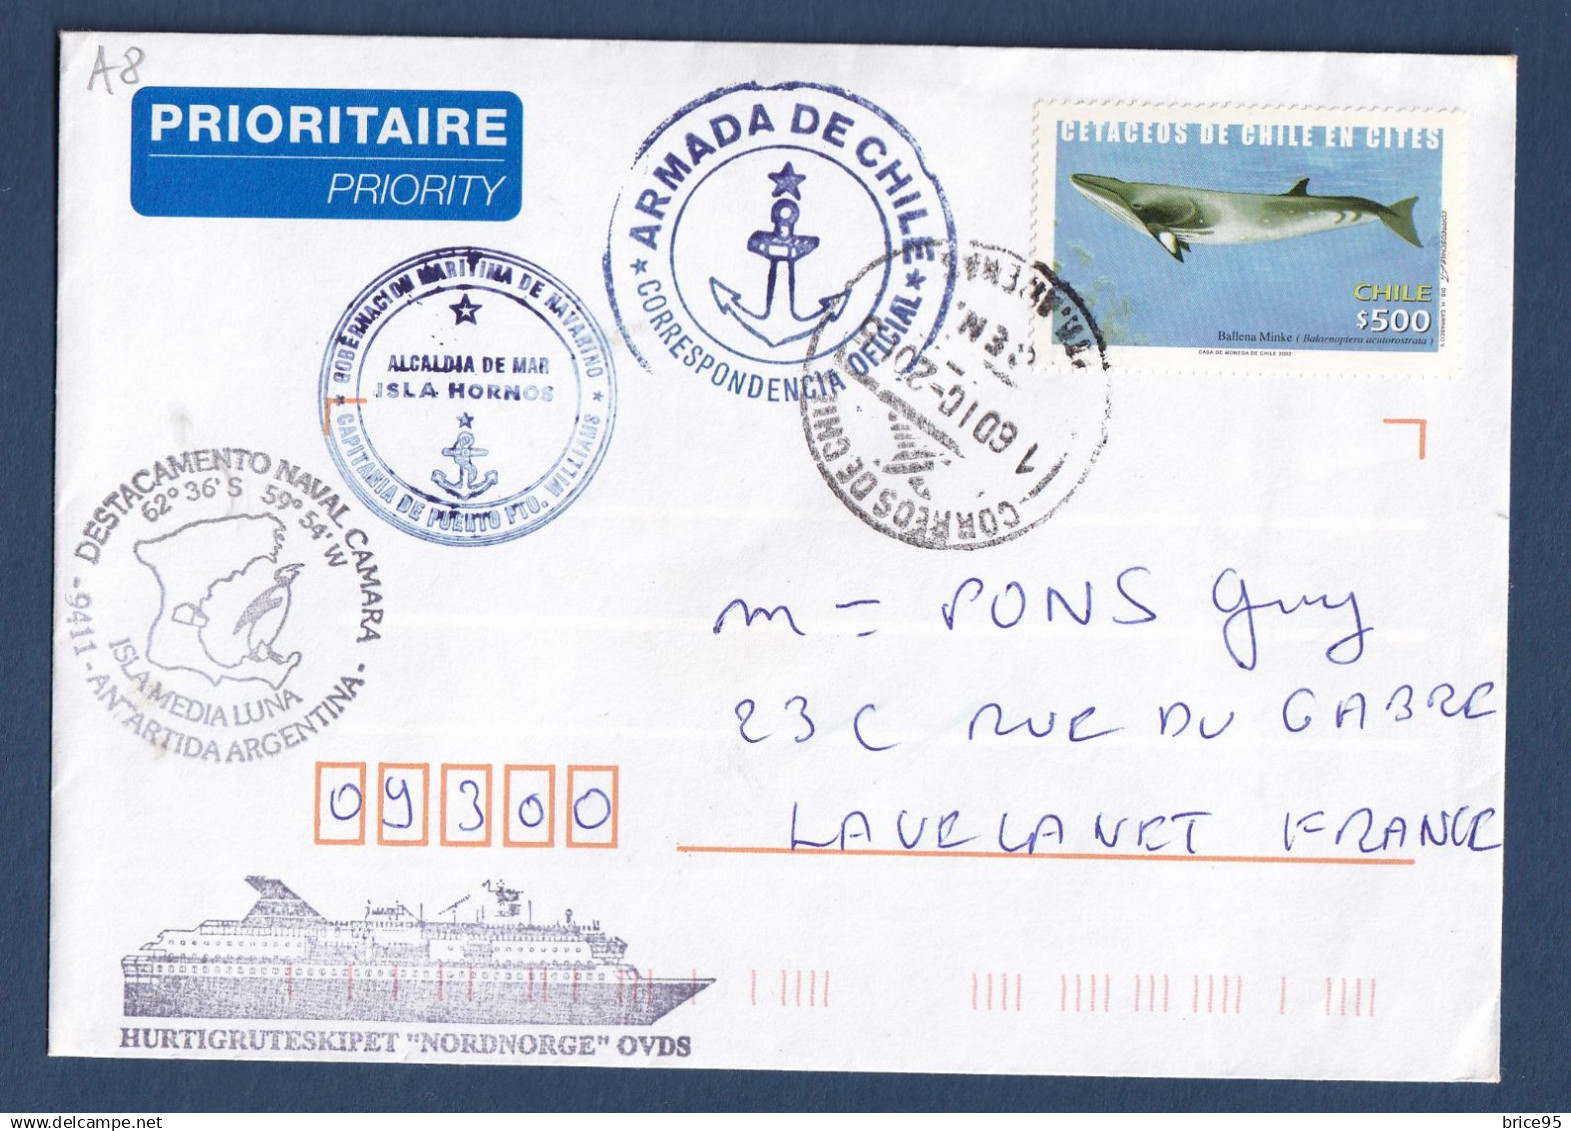 A8
PRIORITAIRE
PRIORITY
ARMADA DE CHILE
CORRESPONDENCIA OFICIAL
CETACEOS DE CHILE EN CITES
CHILE
$500
Ballena Minke ( Balaenoptera acutorostrata )
CASA DE MONEDA DE CHILE 2002
GOBERNACION MARITIMA DE NAVARINO
ALCALDIA DE MAR
ISLA HORNOS
CAPITANIA DE PUERTO PTO. WILLIAMS
CORREOS DE CHILE
DESTACAMENTO NAVAL CAMARA
62° 36' S 59° 54' W
ISLA MEDIA LUNA
9411 - ANTARTIDA ARGENTINA -
m - PONS Guy
23 C RUE DU GABRE
09300
LAVELANET FRANCE
HURTIGRUTESKIPET "NORDNORGE" OVDS
brice95